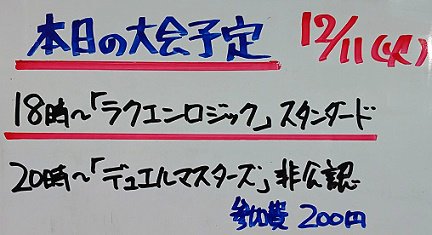 本日の大会予定 12/11(火)
18時~「ラクエンロジック」スタンダード
20時~「デュエルマスターズ」非公認
参加費 200円